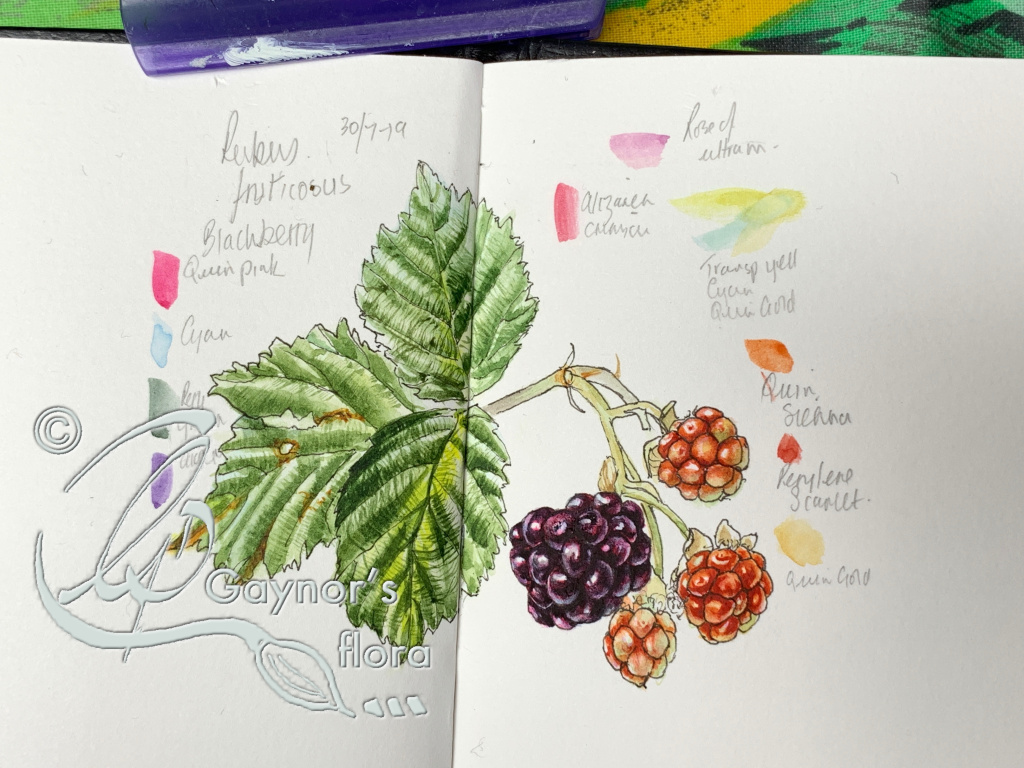 Rubus
30/7-19
fruticosus
Blackberry
Quin pink
Cyan
Rose of
ultram.
Alizarin
Crimson
Transp yell
Cyan
Quin Gold
Quin.
Sienna
Perylene
Scarlet.
Quin Gold
©
Gaynor's
flora